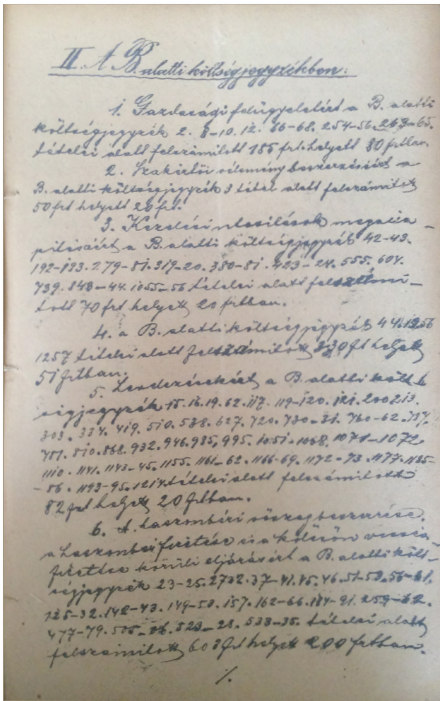 II. A B. alatti költségjegyzékben:
1. Gazdasági felügyeletért a B. alatti
költségjegyzék 2. 8-10. 12. 66-68. 254-56. 263-65.
tételei alatt felszámított 186 frt helyett 80 frtban.
2. Szakértői vélemény beszerzéséért a
B. alatti költségjegyzék 3 tétel alatt felszámított
50 frt helyett 20 frt.
3. Kezelési utasítások megálla-
pításáért a B. alatti költségjegyzék 42-43.
192-193. 279-81. 319-20. 380-81. 423-24. 555. 604.
739. 843-44. 1055-56 tételei alatt felszámí-
tott 70 frt helyett 20 frtban.
4. a B. alatti költségjegyzék 44. 1256
1257 tételei alatt felszámított 330 frt helyett
51 frtban.
5. a B. alatti költ-
ségjegyzék 15. 16. 19. 62. 117. 119-120. 121. 200. 213.
303. 334. 419. 510. 538. 627. 720. 730-31. 760-62. 737.
781. 810. 868. 932. 946. 985, 995. 1051. 1068. 1071-1072
1110. 1141. 1143-45. 1155. 1161-62. 1166-69. 1172-73. 1177. 1185-
-86. 1193-95. 1214 tételei alatt felszámított
82 frt helyett 20 frtban.
6. A haszonbéri összeg beszerzése,
a haszonbér fizetése és a kölcsön vissza-
fizetése körüli eljárásért a B. alatti költ-
ségjegyzék 23-25. 27. 32. 37-41. 45. 46. 51-53. 56-61.
125-32. 142-43. 149-53. 157. 162-66. 184-91. 259-62.
477-79. 505- 523-28. 533-35. tételei alatt
felszámított 603 frt helyett 200 frtban.
%